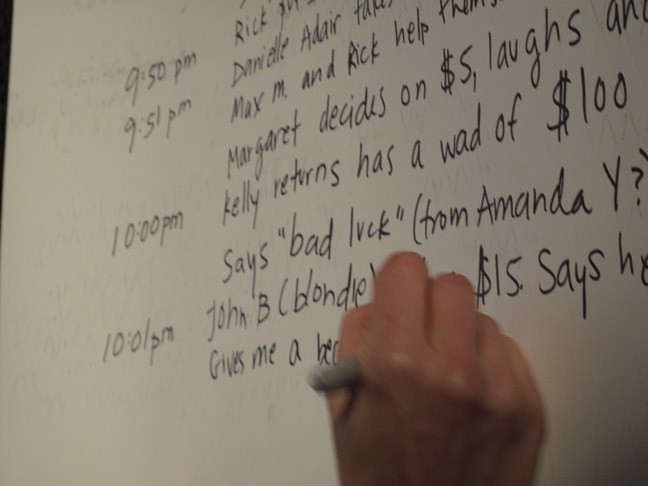 Rick
9:50 pm Danielle Adair takes
9:51 pm Max M. and Rick help thems
Margaret decides on $5, laughs and
Kelly returns has a wad of $100
10:00pm Says "bad luck" (from Amanda Y?
John B (blondie) $15. Says he
10:01pm Gives me a